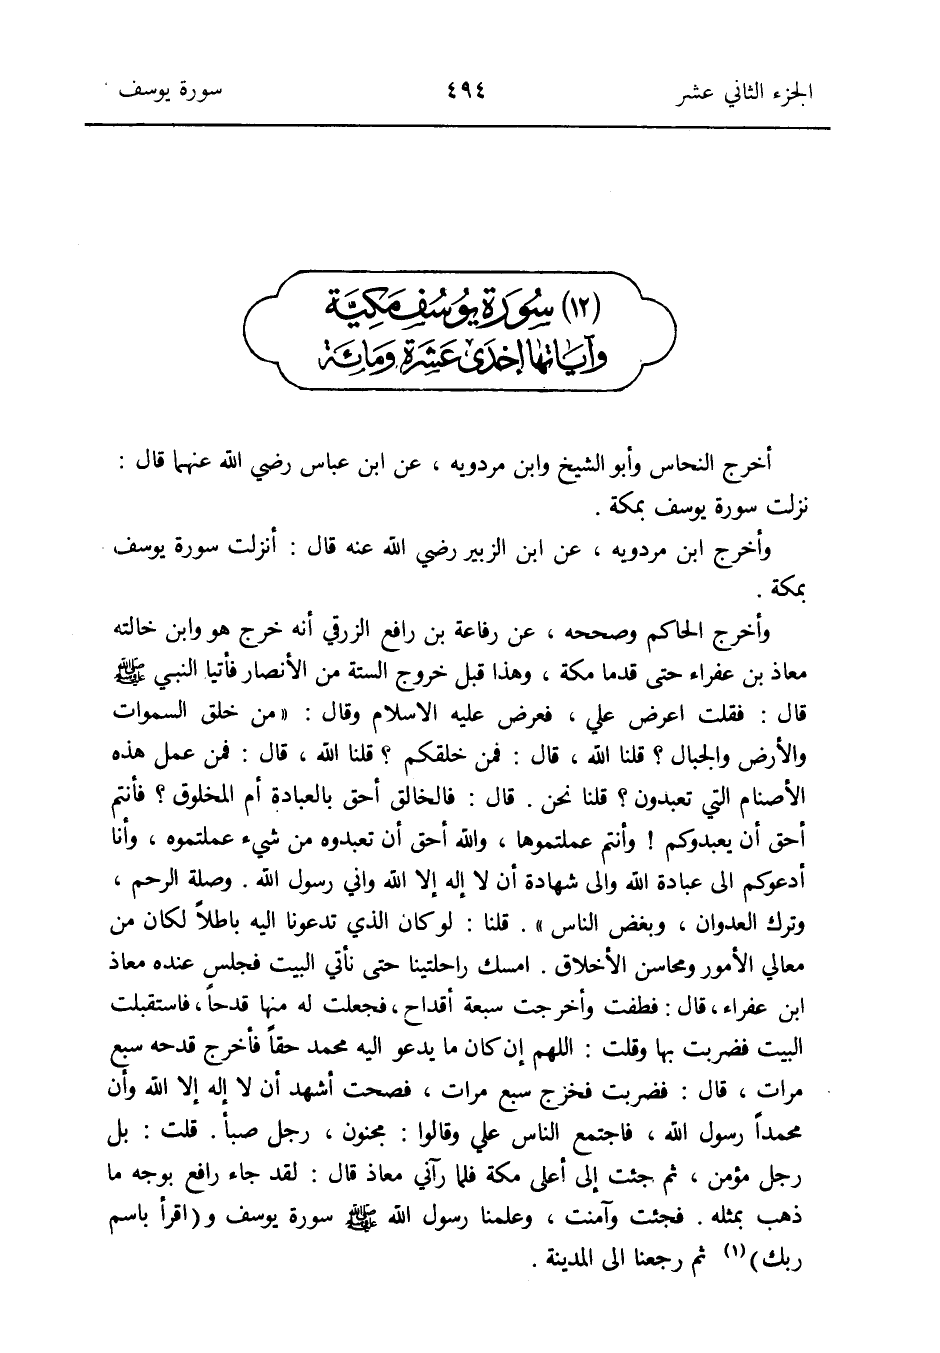 الجزء الثاني عشر ٤٩٤ سورة يوسف
(١٢) سُورَة يوُسُف مَكِيَّة
وَآيَاتُهَا إِحْدَى عَشَرَة وَمَائَة
أخرج النحاس وأبو الشيخ وابن مردويه ، عن ابن عباس رضي الله عنهما قال :
نزلت سورة يوسف بمكة .
وأخرج ابن مردويه ، عن ابن الزبير رضي الله عنه قال : أنزلت سورة يوسف
بمكة .
وأخرج الحاكم وصححه ، عن رفاعة بن رافع الزرقي أنه خرج هو وابن خالته
معاذ بن عفراء حتى قدما مكة ، وهذا قبل خروج الستة من الأنصار فأتيا النبي ﷺ
قال : فقلت اعرض علي ، فعرض عليه الاسلام وقال : «من خلق السموات
والأرض والجبال ؟ قلنا الله ، قال : فمن خلقكم ؟ قلنا الله ، قال : فمن عمل هذه
الأصنام التي تعبدون ؟ قلنا نحن . قال : فالخالق أحق بالعبادة أم المخلوق ؟ فأنتم
أحق أن يعبدوكم ! وأنتم عملتموها ، والله أحق أن تعبدوه من شيء عملتموه ، وأنا
أدعوكم الى عبادة الله والى شهادة أن لا إله إلا الله واني رسول الله . وصلة الرحم ،
وترك العدوان ، وبغض الناس » . قلنا : لو كان الذي تدعونا اليه باطلاً لكان من
معالي الأمور ومحاسن الأخلاق . امسك راحلتينا حتى نأتي البيت فجلس عنده معاذ
ابن عفراء ، قال : فطفت وأخرجت سبعة أقداح ، فجعلت له منها قدحاً ، فاستقبلت
البيت فضربت بها وقلت : اللهم إن كان ما يدعو اليه محمد حقاً فأخرج قدحه سبع
مرات ، قال : فضربت فخرج سبع مرات ، فصحت أشهد أن لا إله إلا الله وأن
محمداً رسول الله ، فاجتمع الناس علي وقالوا : مجنون ، رجل صبأ . قلت : بل
رجل مؤمن ، ثم جئت إلى أعلى مكة فلما رآني معاذ قال : لقد جاء رافع بوجه ما
ذهب بمثله . فجئت وآمنت ، وعلمنا رسول الله ﷺ سورة يوسف و (اقرأ باسم
ربك) (١) ثم رجعنا الى المدينة .